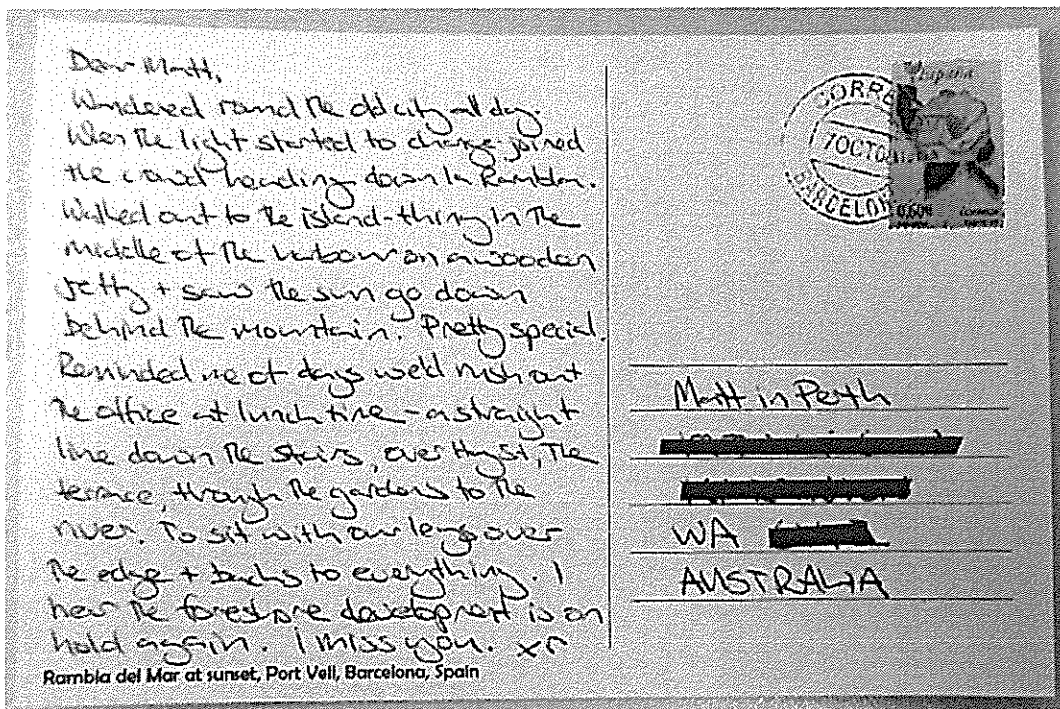 Dear Matt,
Wandered round the old city all day.
When the light started to change joined
the crowd heading down la Rambla.
Walked out to the island-thing in the
middle of the harbour on a wooden
jetty + saw the sun go down
behind the mountain. Pretty special.
Reminded me of days we'd rush out
the office at lunch time - a straight
line down the stairs, over Hay St, The
terrace, through the gardens to the
river. To sit with our legs over
the edge + backs to everything. I
hear the foreshore development is on
hold again. I miss you. xr
Rambla del Mar at sunset, Port Vell, Barcelona, Spain
CORRE
BARCELON
España
Matt in Perth
WA
AUSTRALIA